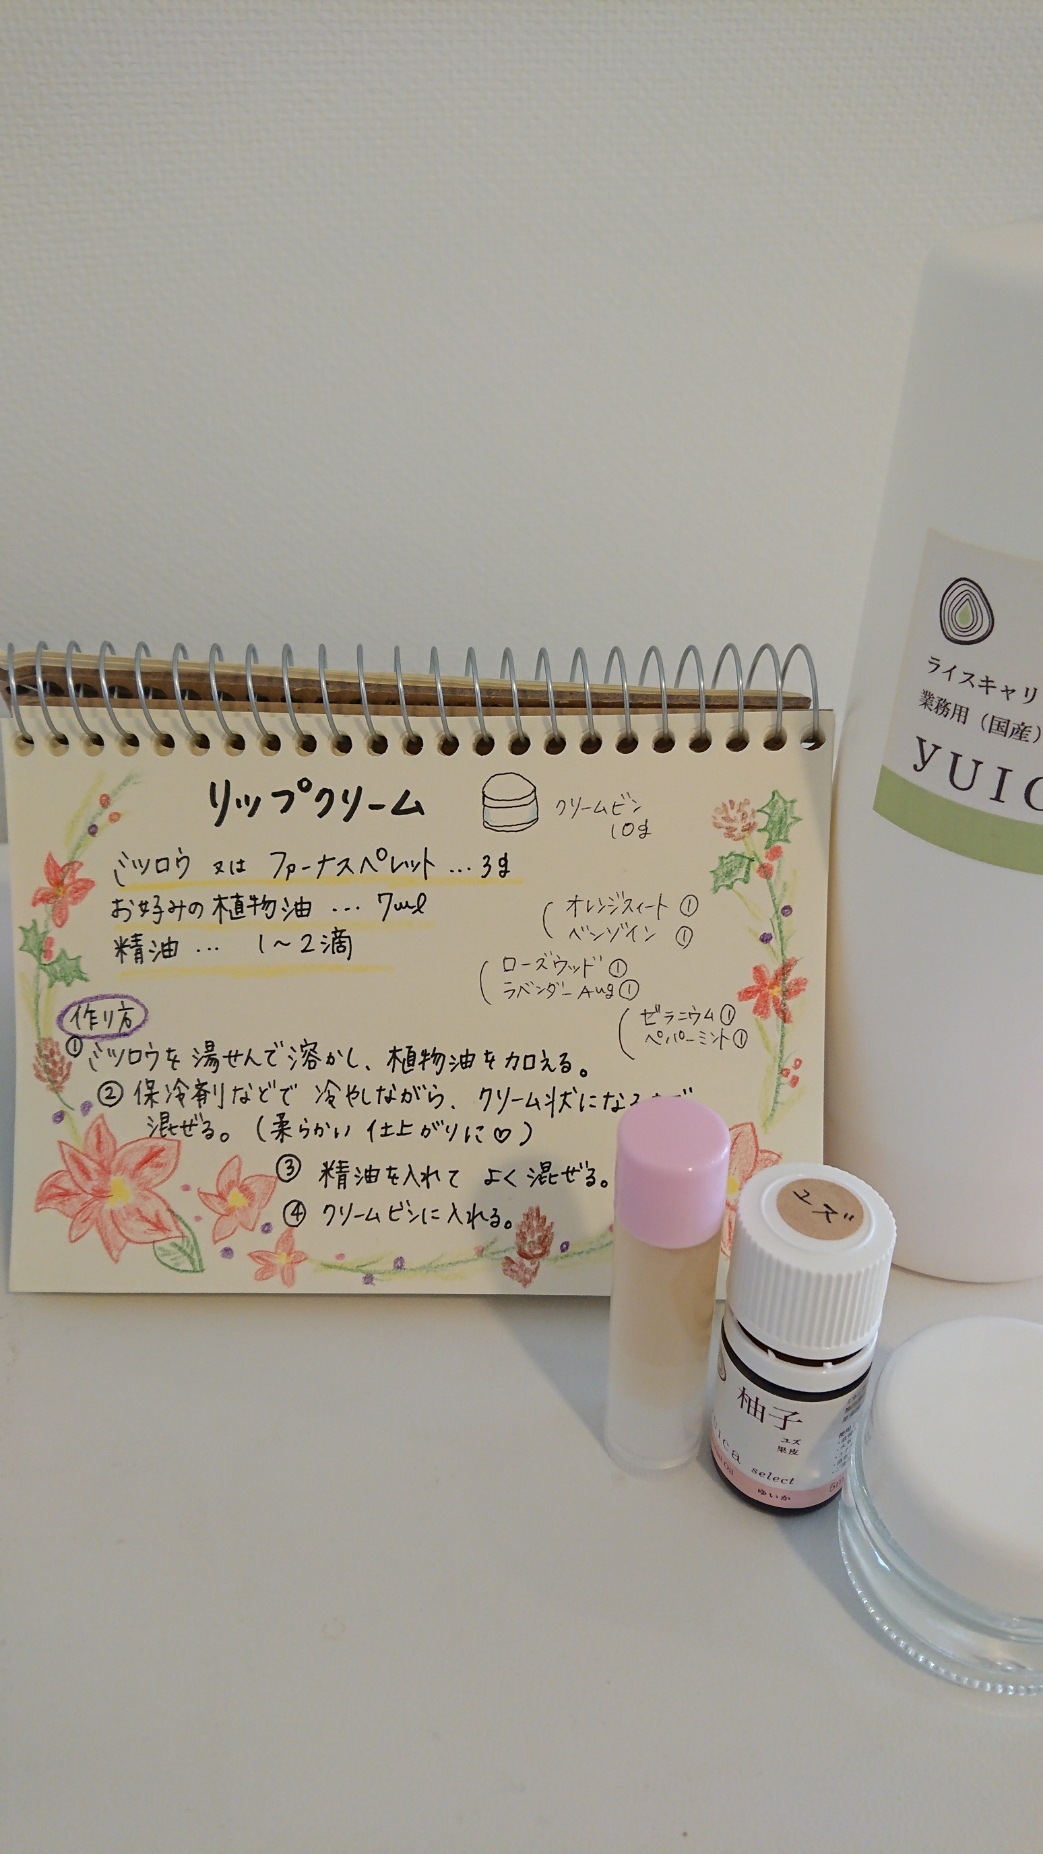 リップクリーム
クリームビン
10g
ミツロウ 又は ファーナスペレット … 3g
お好みの植物油 … 7ml
精油 … 1〜2滴
オレンジスイート ①
ベンゾイン ①
ローズウッド ①
ラベンダーAug ①
ゼラニウム ①
ペパーミント ①
作り方
① ミツロウを湯せんで溶かし、植物油を加える。
② 保冷剤などで 冷やしながら、クリーム状になるまで
混ぜる。(柔らかい 仕上がりに♡)
③ 精油を入れて よく混ぜる。
④ クリームビンに入れる。
ライスキャリ
業務用（国産）
yUIC
ユズ
柚子
ユズ
果皮
uica select
ゆいか